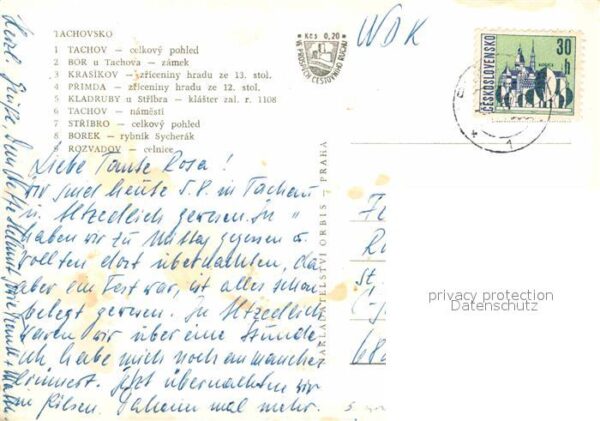 TACHOVSKO
1 TACHOV — celkový pohled
2 BOR u Tachova — zámek
3 KRASÍKOV — zříceniny hradu ze 13. stol.
4 PŘIMDA — zříceniny hradu ze 12. stol.
5 KLADRUBY u Stříbra — klášter zal. r. 1108
6 TACHOV — náměstí
7 STŘÍBRO — celkový pohled
8 BOREK — rybník Sycherák
9 ROZVADOV — celnice
Kčs 0,20
VE PROSPĚCH CESTOVNÍHO RUCHU
WDK
ČESKOSLOVENSKO
30 h
Liebe Tante Rosa!
Wir sind heute 5.8. in Tachau
u. gewesen. In "
haben wir zu Mittag gegessen u.
wollten dort übernachten, da
aber ein Fest war, ist alles schon
belegt gewesen. In
waren wir über eine Stunde
ich habe mich noch an manches
erinnert. Jetzt übernachten wir
in Pilsen. Daheim mal mehr.
Herzl. Grüße,
NAKLADATELSTVÍ ORBIS — PRAHA
St.
privacy protection
Datenschutz